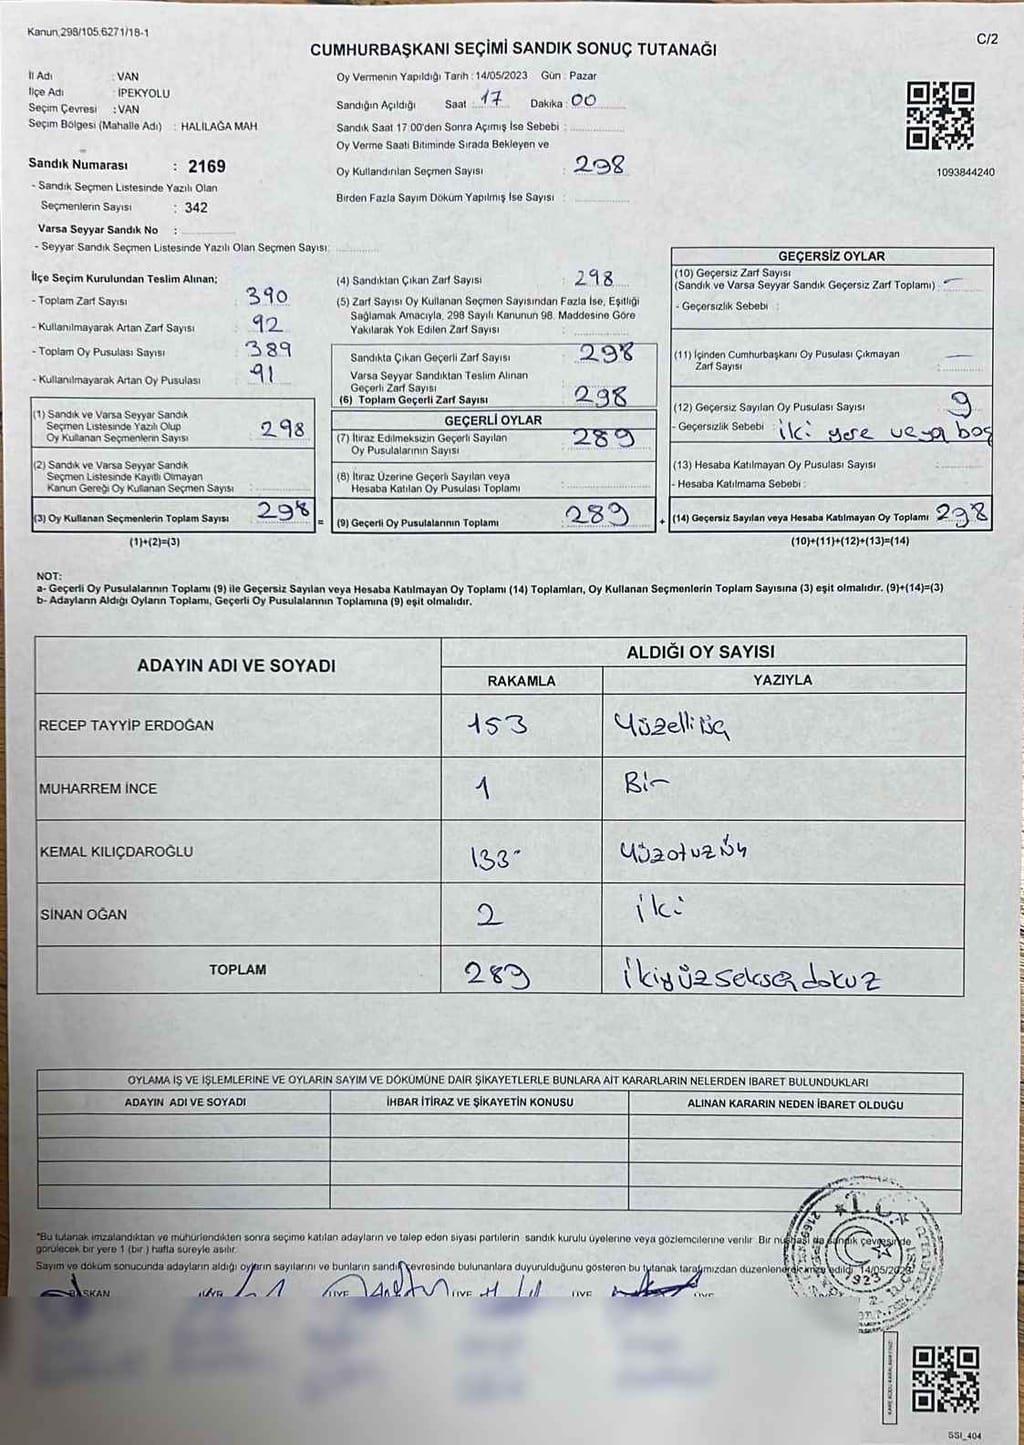 Kanun,298/105,6271/18-1
C/2
CUMHURBAŞKANI SEÇİMİ SANDIK SONUÇ TUTANAĞI
İl Adı : VAN
İlçe Adı : İPEKYOLU
Seçim Çevresi : VAN
Seçim Bölgesi (Mahalle Adı) : HALİLAĞA MAH
Sandık Numarası : 2169
- Sandık Seçmen Listesinde Yazılı Olan
Seçmenlerin Sayısı : 342
Varsa Seyyar Sandık No :
- Seyyar Sandık Seçmen Listesinde Yazılı Olan Seçmen Sayısı:
Oy Vermenin Yapıldığı Tarih : 14/05/2023 Gün : Pazar
Sandığın Açıldığı Saat : 17 Dakika : 00
Sandık Saat 17:00'den Sonra Açımış İse Sebebi :
Oy Verme Saati Bitiminde Sırada Bekleyen ve
Oy Kullandırılan Seçmen Sayısı : 298
Birden Fazla Sayım Döküm Yapılmış İse Sayısı :
1093844240
İlçe Seçim Kurulundan Teslim Alınan;
- Toplam Zarf Sayısı : 390
- Kullanılmayarak Artan Zarf Sayısı : 92
- Toplam Oy Pusulası Sayısı : 389
- Kullanılmayarak Artan Oy Pusulası : 91
(1) Sandık ve Varsa Seyyar Sandık
Seçmen Listesinde Yazılı Olup
Oy Kullanan Seçmenlerin Sayısı : 298
(2) Sandık ve Varsa Seyyar Sandık
Seçmen Listesinde Kayıtlı Olmayan
Kanun Gereği Oy Kullanan Seçmen Sayısı
(3) Oy Kullanan Seçmenlerin Toplam Sayısı 298
(1)+(2)=(3)
(4) Sandıktan Çıkan Zarf Sayısı : 298
(5) Zarf Sayısı Oy Kullanan Seçmen Sayısından Fazla İse, Eşitliği
Sağlamak Amacıyla, 298 Sayılı Kanunun 98. Maddesine Göre
Yakılarak Yok Edilen Zarf Sayısı :
Sandıkta Çıkan Geçerli Zarf Sayısı : 298
Varsa Seyyar Sandıktan Teslim Alınan
Geçerli Zarf Sayısı
(6) Toplam Geçerli Zarf Sayısı : 298
GEÇERLİ OYLAR
(7) İtiraz Edilmeksizin Geçerli Sayılan
Oy Pusulalarının Sayısı : 289
(8) İtiraz Üzerine Geçerli Sayılan veya
Hesaba Katılan Oy Pusulası Toplamı
= (9) Geçerli Oy Pusulalarının Toplamı : 289
GEÇERSİZ OYLAR
(10) Geçersiz Zarf Sayısı
(Sandık ve Varsa Seyyar Sandık Geçersiz Zarf Toplamı) : —
- Geçersizlik Sebebi :
(11) İçinden Cumhurbaşkanı Oy Pusulası Çıkmayan
Zarf Sayısı : —
(12) Geçersiz Sayılan Oy Pusulası Sayısı : 9
- Geçersizlik Sebebi : iki yere veya boş
(13) Hesaba Katılmayan Oy Pusulası Sayısı
- Hesaba Katılmama Sebebi :
+ (14) Geçersiz Sayılan veya Hesaba Katılmayan Oy Toplamı 298
(10)+(11)+(12)+(13)=(14)
NOT:
a- Geçerli Oy Pusulalarının Toplamı (9) ile Geçersiz Sayılan veya Hesaba Katılmayan Oy Toplamı (14) Toplamları, Oy Kullanan Seçmenlerin Toplam Sayısına (3) eşit olmalıdır. (9)+(14)=(3)
b- Adayların Aldığı Oyların Toplamı, Geçerli Oy Pusulalarının Toplamına (9) eşit olmalıdır.
ADAYIN ADI VE SOYADI ALDIĞI OY SAYISI
RAKAMLA YAZIYLA
RECEP TAYYİP ERDOĞAN 153 Yüzelliüç
MUHARREM İNCE 1 Bir
KEMAL KILIÇDAROĞLU 133 Yüzotuzüç
SİNAN OĞAN 2 iki
TOPLAM 289 ikiyüzseksendokuz
OYLAMA İŞ VE İŞLEMLERİNE VE OYLARIN SAYIM VE DÖKÜMÜNE DAİR ŞİKAYETLERLE BUNLARA AİT KARARLARIN NELERDEN İBARET BULUNDUKLARI
ADAYIN ADI VE SOYADI İHBAR İTİRAZ VE ŞİKAYETİN KONUSU ALINAN KARARIN NEDEN İBARET OLDUĞU
"Bu tutanak imzalandıktan ve mühürlendikten sonra seçime katılan adayların ve talep eden siyasi partilerin sandık kurulu üyelerine veya gözlemcilerine verilir. Bir nüshası da sandık çevresinde
görülecek bir yere 1 (bir ) hafta süreyle asılır.
Sayım ve döküm sonucunda adayların aldığı oyların sayılarını ve bunların sandık çevresinde bulunanlara duyurulduğunu gösteren bu tutanak tarafımızdan düzenlenerek imza edildi. 14/05/2023
BAŞKAN ÜYE ÜYE ÜYE ÜYE ÜYE
T.C.
1923
SSI_404